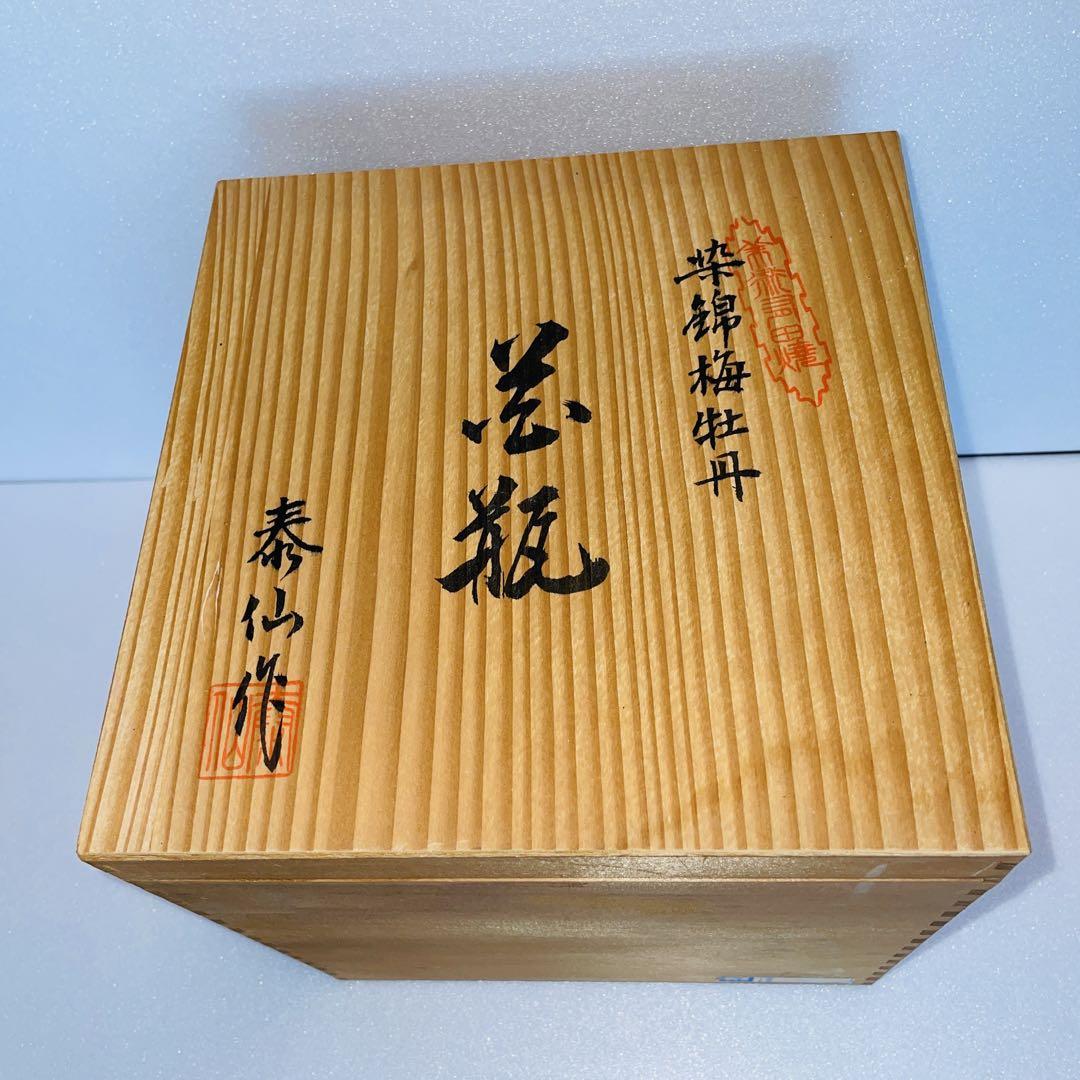 美術有田焼
染錦梅牡丹
花瓶
泰仙作
泰仙